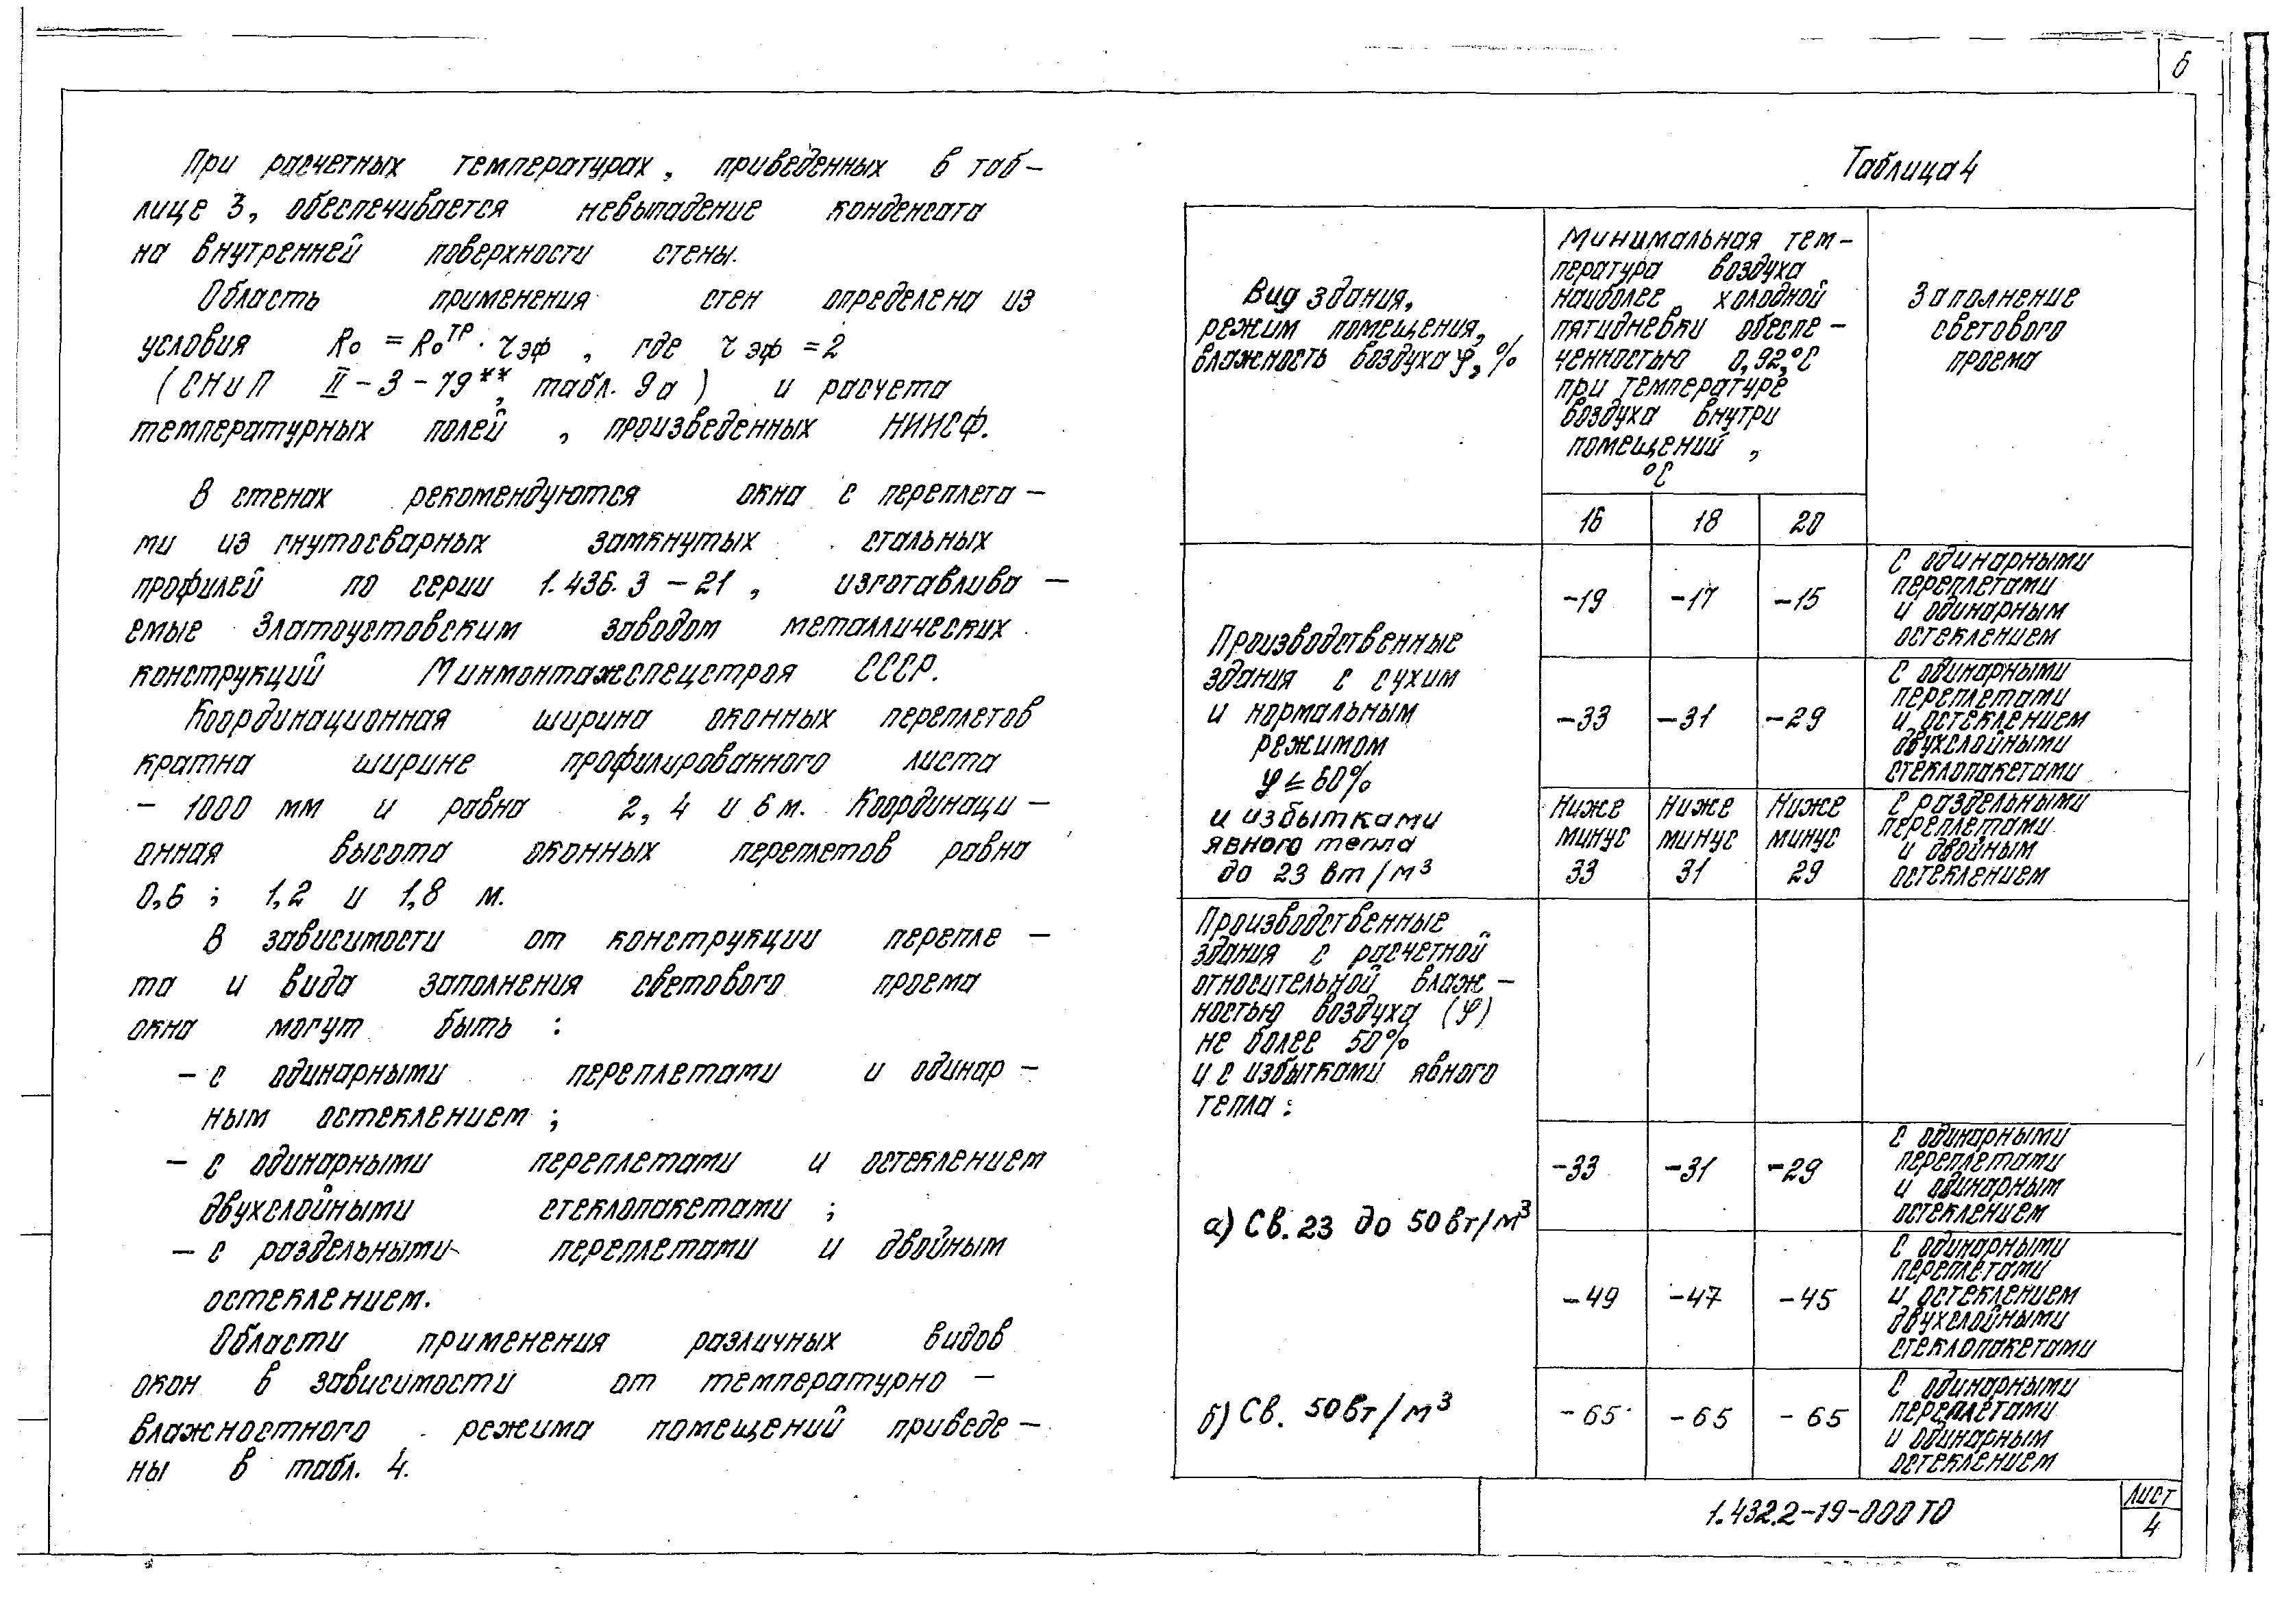 6
При расчетных температурах, приведенных в таб-
лице 3, обеспечивается невыпадение конденсата
на внутренней поверхности стены.
Область применения стен определена из
условия Rо = Rоᵀᴾ · r эф, где r эф = 2
(СНиП II-3-79**, табл. 9а) и расчета
температурных полей, произведенных НИИСФ.
В стенах рекомендуются окна с переплета-
ми из гнутосварных замкнутых стальных
профилей по серии 1.436.3-21, изготавлива-
емые Златоустовским заводом металлических
конструкций Минмонтажспецстроя СССР.
Координационная ширина оконных переплетов
кратна ширине профилированного листа
- 1000 мм и равна 2, 4 и 6 м. Координаци-
онная высота оконных переплетов равна
0,6; 1,2 и 1,8 м.
В зависимости от конструкции перепле-
та и вида заполнения светового проема
окна могут быть:
- с одинарными переплетами и одинар-
ным остеклением;
- с одинарными переплетами и остеклением
двухслойными стеклопакетами;
- с раздельными переплетами и двойным
остеклением.
Области применения различных видов
окон в зависимости от температурно-
влажностного режима помещений приведе-
ны в табл. 4.
Таблица 4
Вид здания,
режим помещения,
влажность воздуха φ, %
Минимальная тем-
пература воздуха
наиболее холодной
пятидневки обеспе-
ченностью 0,92, °С
при температуре
воздуха внутри
помещений,
°С
Заполнение
светового
проема
16 18 20
Производственные
здания с сухим
и нормальным
режимом
φ ≤ 60%
и избытками
явного тепла
до 23 вт/м³
-19 -17 -15
с одинарными
переплетами
и одинарным
остеклением
-33 -31 -29
с одинарными
переплетами
и остеклением
двухслойными
стеклопакетами
Ниже минус 33
Ниже минус 31
Ниже минус 29
с раздельными
переплетами
и двойным
остеклением
Производственные
здания с расчетной
относительной влаж-
ностью воздуха (φ)
не более 50%
и с избытками явного
тепла:
а) Св. 23 до 50 вт/м³
-33 -31 -29
с одинарными
переплетами
и одинарным
остеклением
-49 -47 -45
с одинарными
переплетами
и остеклением
двухслойными
стеклопакетами
б) Св. 50 вт/м³
-65 -65 -65
с одинарными
переплетами
и одинарным
остеклением
1.432.2-19-000 ТО
Лист
4